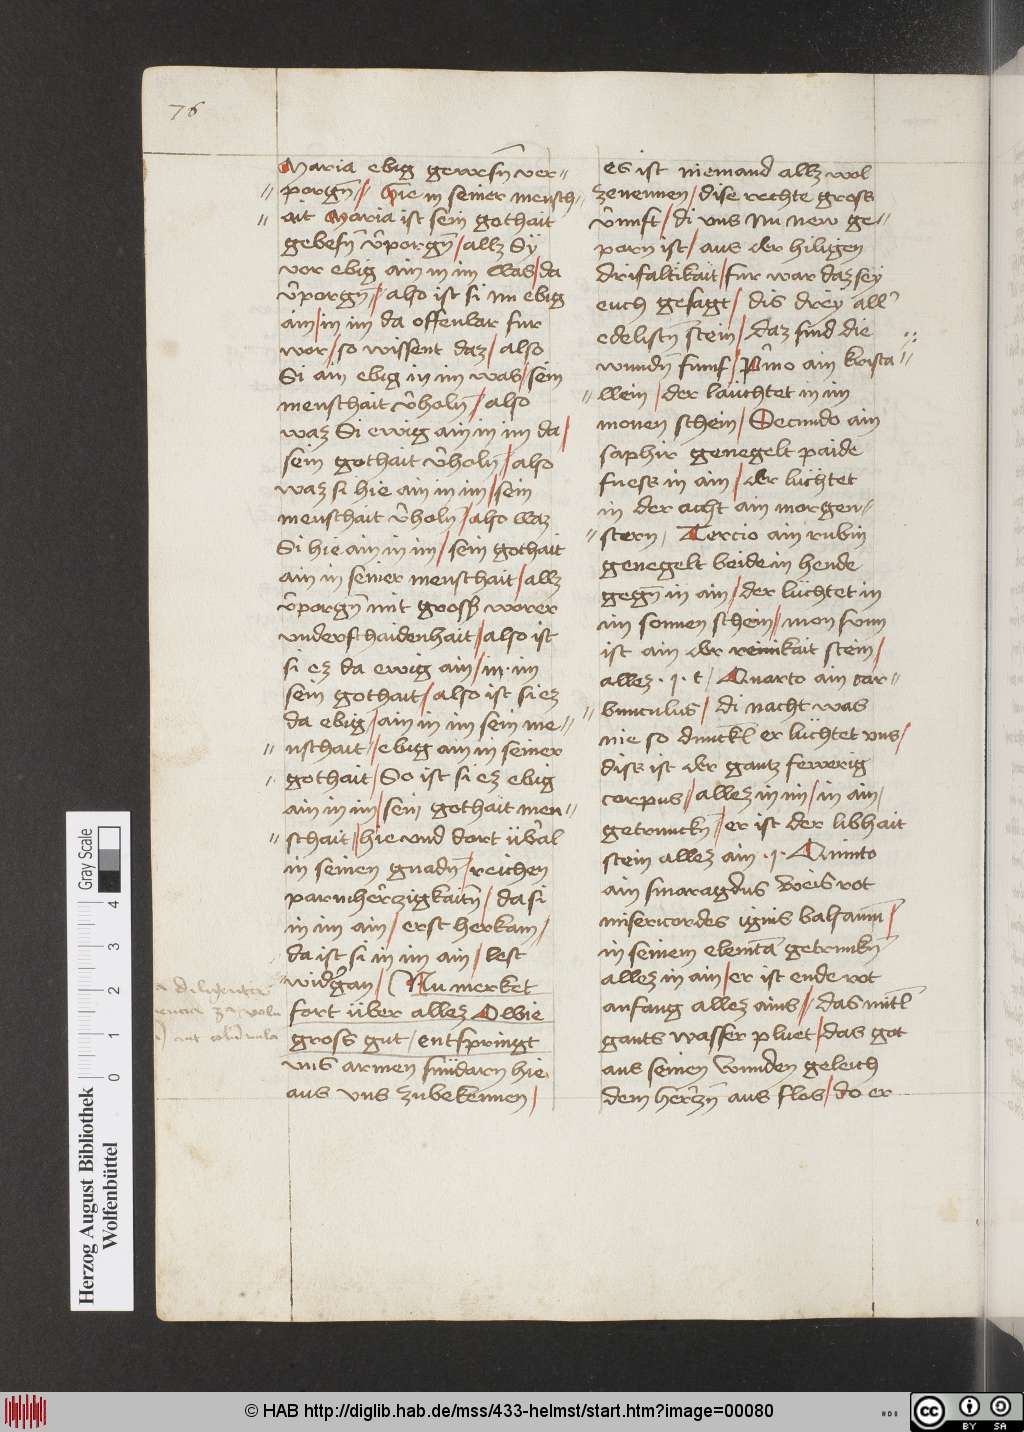 76
Maria ebig gewesn̄ ver=
porgn̄ // Hie in seiner mensch=
ait Maria ist sein gothait
gebesn̄ v̄porgn̄ / allz Sÿ
vor ebig ain in im Was / da
v̄porgn̄ / also ist si im ebig
ain / in im da offenbar fur
wor / so wissent daz / also
Si ain ebig in im was / sein
menschait v̄holn̄ / also
waz Si ewig ain in im da /
sein gothait v̄holn̄ / also
waz si hie ain in im / sein
menschait v̄holn̄ / also waz
Si hie ain in im / sein gothait
ain in seiner menschait / allz
v̄porgn̄ mit grosß worer
underschaidenhait / also ist
si ez da ewig ain / in im
sein gothait / also ist si ez
da ebig / ain in im sein me=
nschait / ebig ain in seiner
gothait / So ist si ez ebig
ain in im / sein gothait men=
schait / hie und dort üb̄al
in seinen gnadn̄ / reichen
parmhērzigkaitn̄ / da si
in im ain / erst herkam /
da ist si in im ain / lest
widgan / Nu merket
fort über allez O wie
gross gut / entspringt
uns armen sündarn hie
aus uns zubekennen /
es ist niemand allz wol
zenennen / dise rechte gross
v̄nnft / di uns nu new ge=
porn ist / aus der hiligen
drifaltikait / fur war daz sey
euch gesagt / dis drey all
edelistn̄ stein / daz sind die
wundn̄ funf / P̄mo ain krista
llein / der läuchtet in im
monen schein / Secundo ain
saphir genegelt paide
fuess in ain / der lüchtet
in der acht ain morgen=
stern / Tercio ain rubin
genegelt beide in hende
gegn̄ in ain / der lüchtet in
im sonnen schein / mon sunn
ist ain der reinikait stein /
allez · 1 · t / Quarto ain car=
bunculus / di nacht was
nie so dunckl er lüchtet uns /
diss ist der gantz fewerig
corpus / allez in im / in ain /
getrunckn̄ / er ist der libhait
stein allez ain · 1 · Quinto
ain smaragdus weis rot
misericordes ignis balsamū /
in seinem elemtā getrunkn̄
allez in ain / er ist ende rot
anfang allez ains // das mitl
gants wasser pluet / das got
aus seinen wunden geleich
dem hērzn̄ aus flos / do er
Herzog August Bibliothek
Wolfenbüttel
0 1 2 3 4
Gray Scale
© HAB http://diglib.hab.de/mss/433-helmst/start.htm?image=00080
cc BY SA